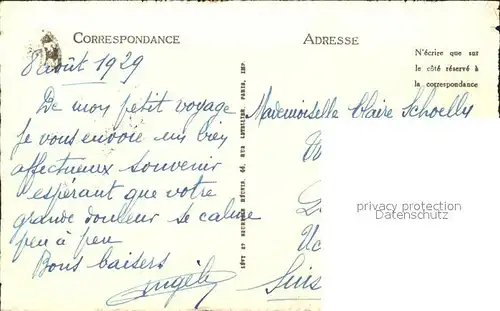 CORRESPONDANCE
ADRESSE
N'écrire que sur
le côté réservé à
la correspondance
8 août 1929
De mon petit voyage
je vous envoie un bien
affectueux souvenir
espérant que votre
grande douleur se calme
peu à peu
Bons baisers
Angèle
LÉVY ET NEURDEIN RÉUNIS, 44, RUE LETELLIER, PARIS, IMP.
Mademoiselle Claire Schoelly
Suis
privacy protection
Datenschutz